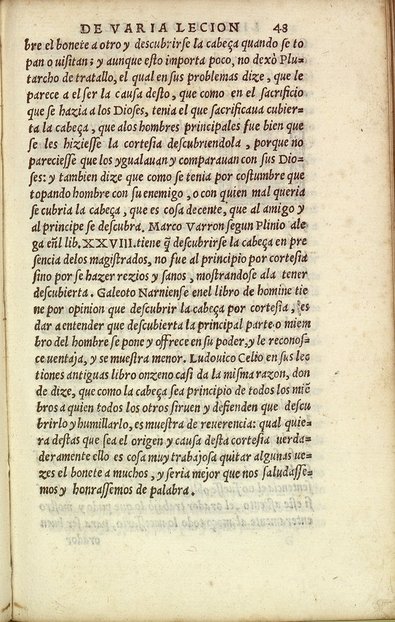 DE VARIA LECION 48
bre el bonete a otro y descubrirse la cabeça quando se to
pan o uisitan; y aunque esto importa poco, no dexò Plu-
tarcho de tratallo, el qual en sus problemas dize, que le
parece a el ser la causa desto, que como en el sacrificio
que se hazia a los Dioses, tenia el que sacrificaua cubier-
ta la cabeça, que alos hombres principales fue bien que
se les hiziesse la cortesia descubriendola, porque no
pareciesse que los ygualauan y comparauan con sus Dio-
ses: y tambien dize que como se tenia por costumbre que
topando hombre con su enemigo, o con quien mal queria
se cubria la cabeça, que es cosa decente, que al amigo y
al principe se descubra. Marco Varron segun Plinio ale
ga eñl lib. XXVIII. tiene q̃ descubrirse la cabeça en pre
sencia delos magistrados, no fue al principio por cortesia
sino por se hazer rezios y sanos, mostrandose ala tener
descubierta. Galeoto Narniense enel libro de homine tie
ne por opinion que descubrir la cabeça por cortesia, es
dar a entender que descubierta la principal parte o miem
bro del hombre se pone y offrece en su poder, y le reconos-
ce uentaja, y se muestra menor. Ludouico Celio en sus lec
tiones antiguas libro onzeno casi da la misma razon, don
de dize, que como la cabeça sea principio de todos los miẽ
bros a quien todos los otros siruen y defienden que descu
brirlo y humillarlo, es muestra de reuerencia: qual quie
ra destas que sea el origen y causa desta cortesia uerda-
deramente ello es cosa muy trabajosa quitar algunas ue-
zes el bonete a muchos, y seria mejor que nos saludasse-
mos y honrassemos de palabra.